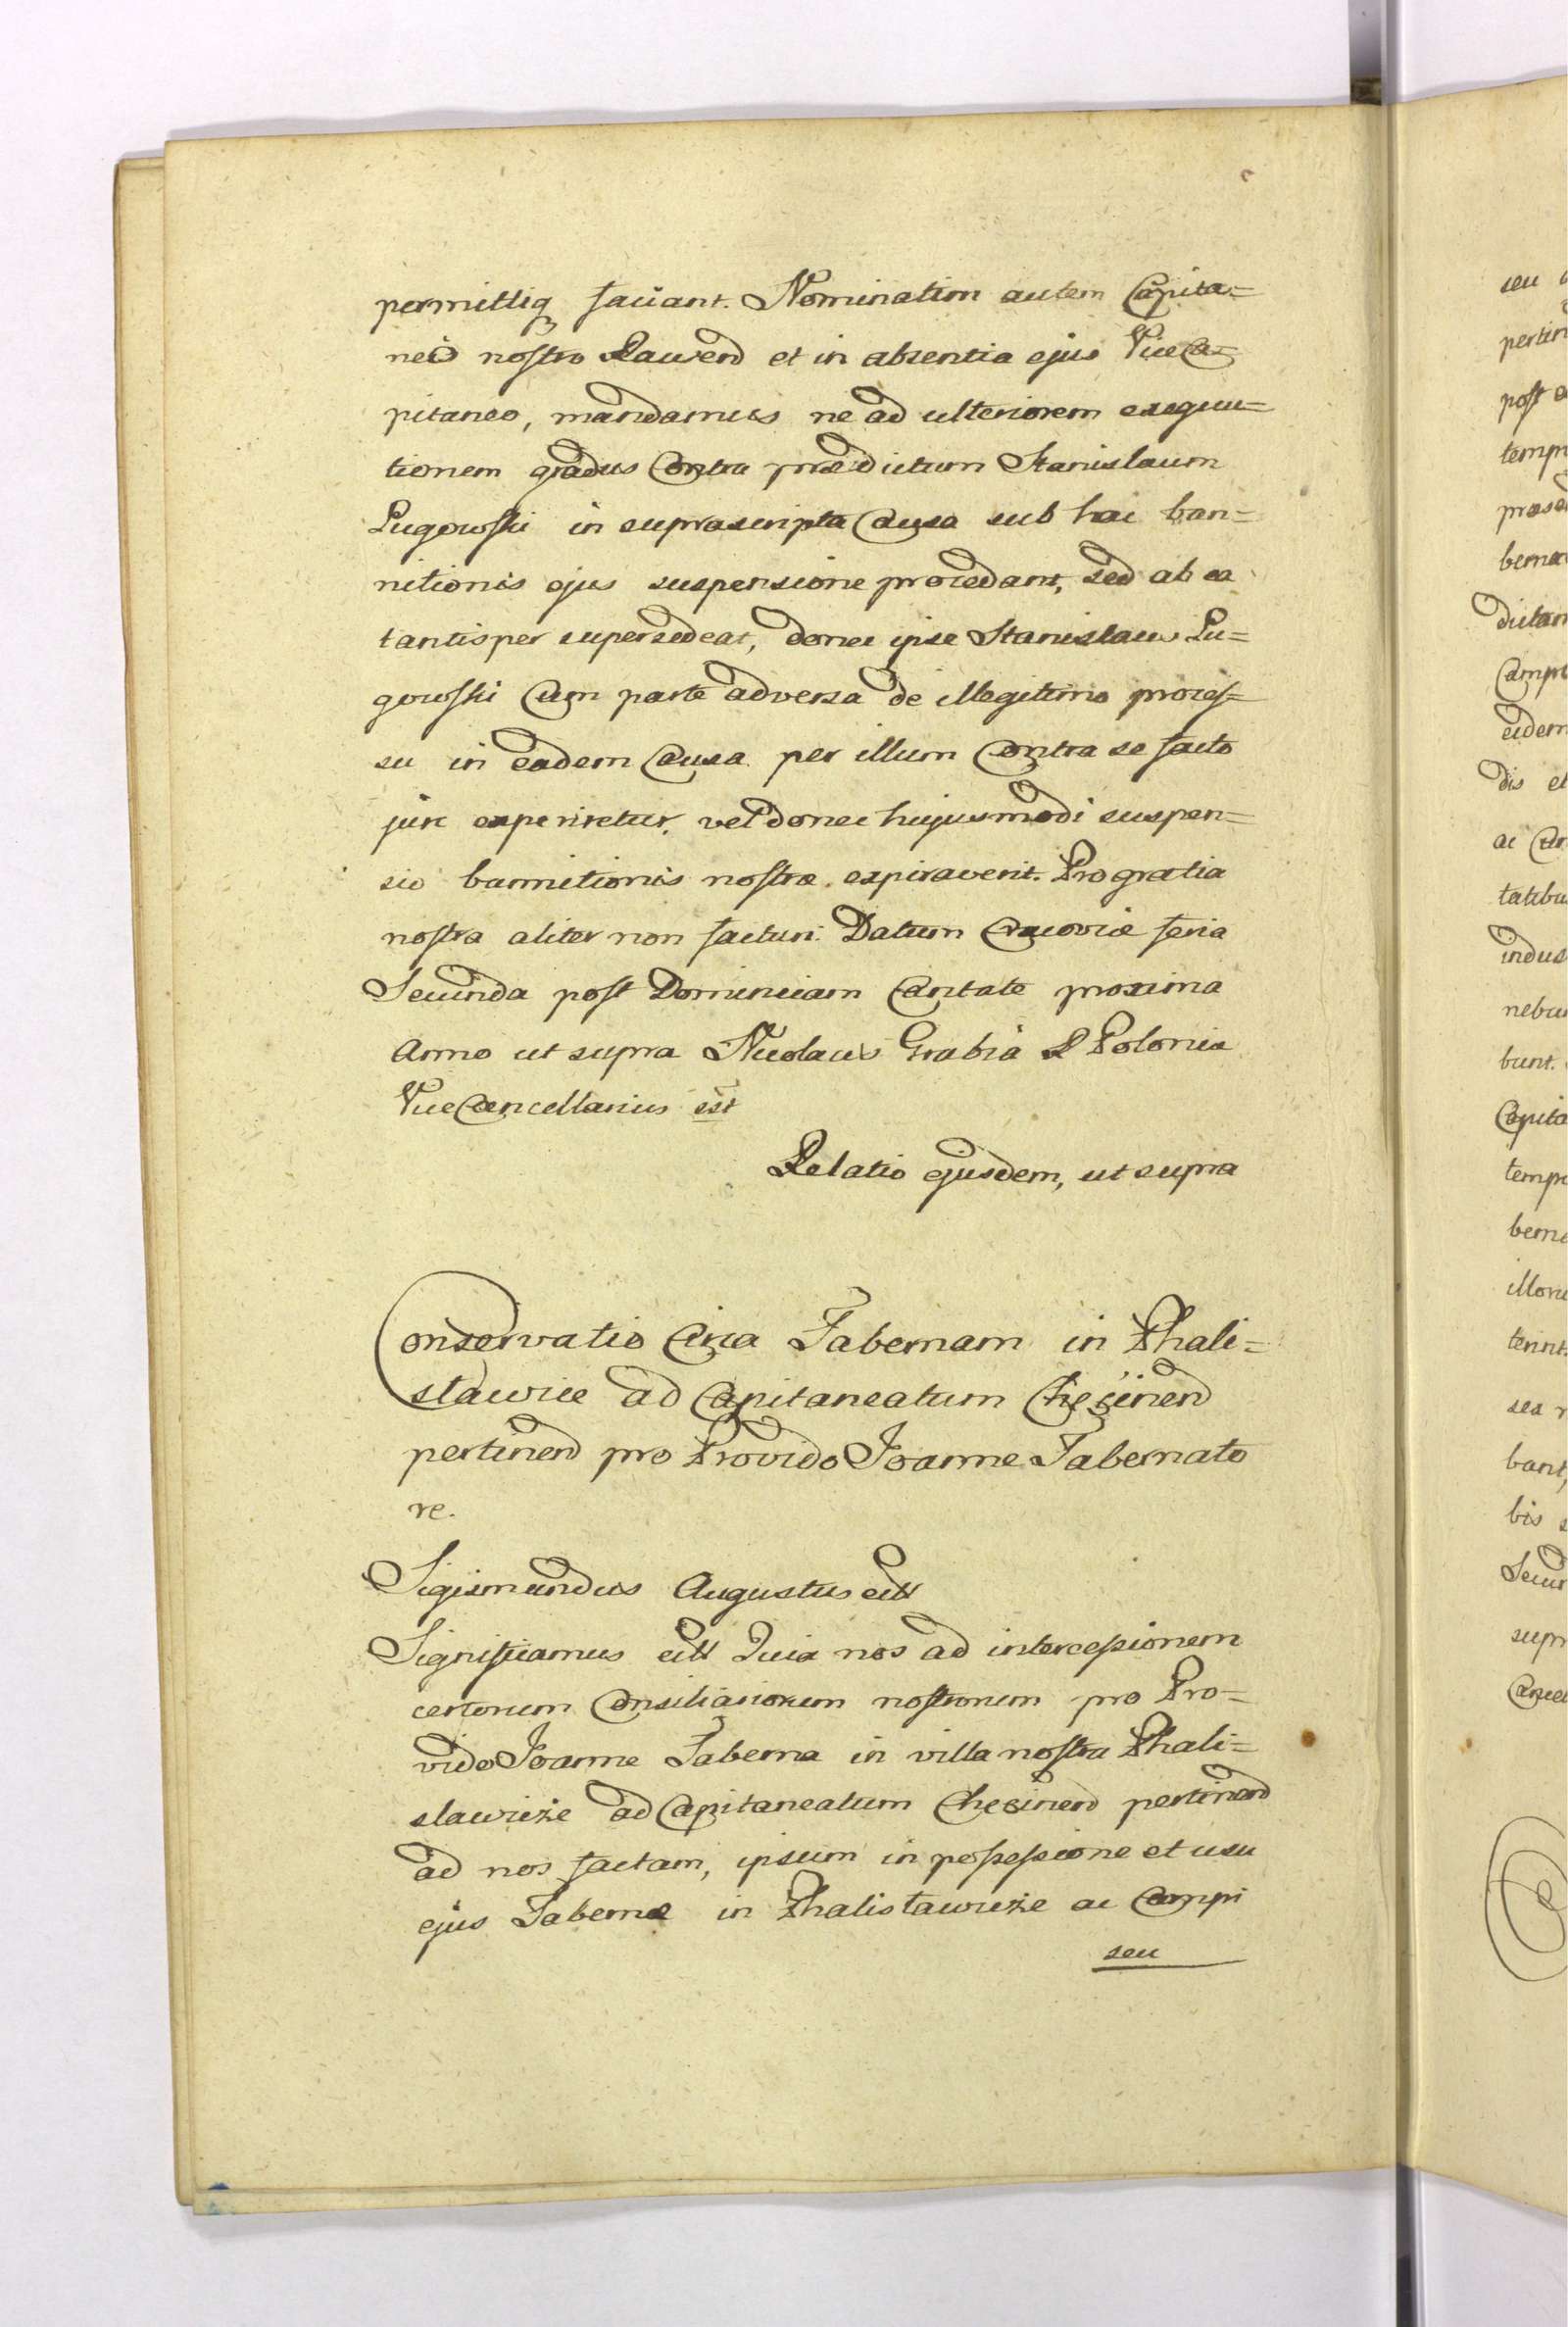 permittiq faciant. Nominatim autem Capita=
neo nostro Rawen et in absentia ejus ViceCa=
pitaneo, mandamus ne ad ulteriorem exequu=
tionem gradus Contra prædictum Stanislaum
Pugowski in suprascripta Causa sub hac ban=
nitionis ejus suspensione procedant, sed ab ea
tantisper supersedeat, donec ipse Stanislaus Pu=
gowski Cum parte adversa de illegitimo proces=
su in eadem Causa per illum Contra se facto
jure experiretur, vel donec hujusmodi suspen=
sio bannitionis nostræ expiraverit. Pro gratia
nostra aliter non facturi. Datum Cracoviæ feria
Secunda post Dominicam Cantate proxima
Anno ut supra Nicolaus Grabia R Polonia
ViceCancellarius sst
Relatio ejusdem, ut supra
Conservatio Circa Tabernam in Phali=
slawice ad Capitaneatum Chęcinen
pertinen pro Provido Joanne Tabernato
re.
Sigismundus Augustus ett
Significamus ett Quia nos ad intercessionem
certorum Consiliariorum nostrorum pro Pro=
vido Joanne Taberna in villa nostra Phali=
slawicze ad Capitaneatum Checinen pertinen
ad nos factam, ipsum in possessione et usu
ejus Tabernæ in Phalislawicze ac Campi
seu
seu
post
temp
Capita
temp
bant,
bis
supr